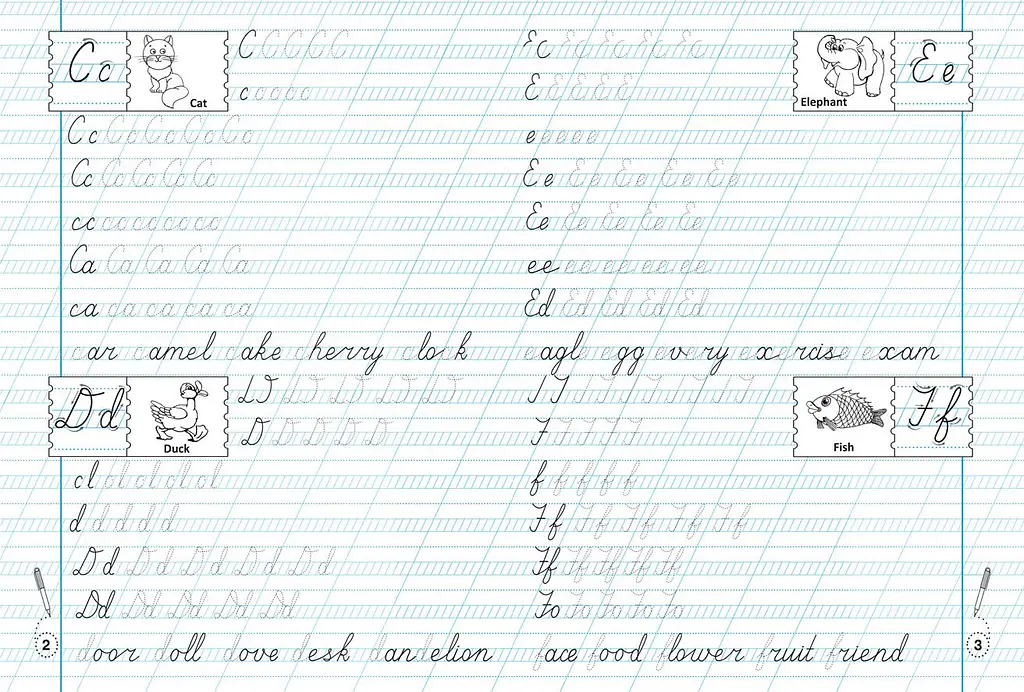 Cc
Cat
C C C C C
c c c c c
Cc Cc Cc Cc Cc
Cc Cc Cc Cc Cc
cc cc cc cc cc
Ca Ca Ca Ca Ca
ca ca ca ca ca
car camel cake cherry clock
Dd
Duck
D D D D D
cl cl cl cl cl
d d d d d
Dd Dd Dd Dd Dd
Dd Dd Dd Dd Dd
door doll dove desk dandelion
2
Ec Ec Ec Ec Ec
Elephant
Ee
E E E E E
e e e e e
Ee Ee Ee Ee Ee
Ee Ee Ee Ee Ee
ee ee ee ee ee
Ed Ed Ed Ed Ed
eagle egg every exercise exam
Fish
Ff
F F F F F
f f f f f
Ff Ff Ff Ff Ff
Ff Ff Ff Ff Ff
Fo Fo Fo Fo Fo
face food flower fruit friend
3